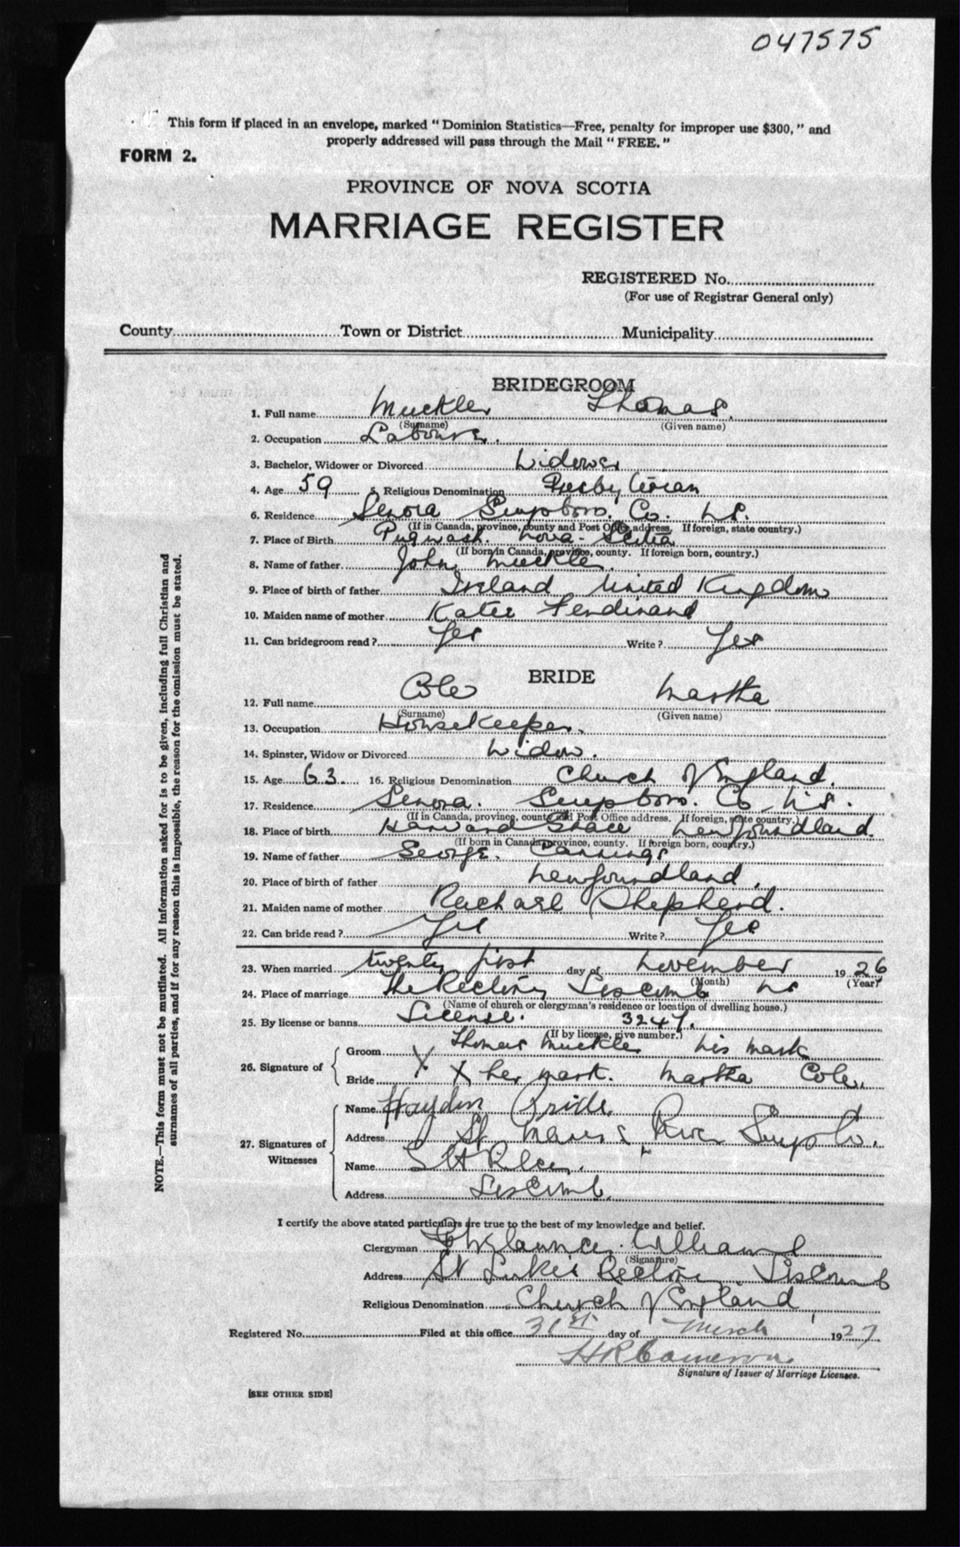 047575
This form if placed in an envelope, marked "Dominion Statistics—Free, penalty for improper use $300," and
properly addressed will pass through the Mail "FREE."
FORM 2.
PROVINCE OF NOVA SCOTIA
MARRIAGE REGISTER
REGISTERED No.
(For use of Registrar General only)
County Town or District Municipality
BRIDEGROOM
1. Full name Muckler Thomas.
(Surname) (Given name)
2. Occupation Labourer.
3. Bachelor, Widower or Divorced Widower
4. Age 59 5. Religious Denomination Presbyterian
6. Residence Senora Guysboro. Co. N.S.
(If in Canada, province, county and Post Office address. If foreign, state country.)
7. Place of Birth Pugwash. Nova-Scotia
(If born in Canada, province, county. If foreign born, country.)
8. Name of father John Muckler.
9. Place of birth of father Ireland United Kingdom
10. Maiden name of mother Katie Ferdinand
11. Can bridegroom read? Yes Write? Yes
BRIDE
12. Full name Cole Martha
(Surname) (Given name)
13. Occupation Housekeeper.
14. Spinster, Widow or Divorced Widow.
15. Age 63. 16. Religious Denomination Church of England.
17. Residence Senora. Guysboro. Co N.S.
(If in Canada, province, county and Post Office address. If foreign, state country.)
18. Place of birth Newfoundland.
(If born in Canada, province, county. If foreign born, country.)
19. Name of father George. Cannings
20. Place of birth of father Newfoundland.
21. Maiden name of mother Rachael Shepherd.
22. Can bride read? Yes Write? Yes
23. When married twenty first day of November 1926
(Month) (Year)
24. Place of marriage The Rectory Liscomb NS
(Name of church or clergyman's residence or location of dwelling house.)
25. By license or banns License. 3247.
(If by license, give number.)
26. Signature of
Groom X Thomas Muckler his mark
Bride X her mark. Martha Cole.
27. Signatures of Witnesses
Name Hayden
Address St Mary's River Guys Co.
Name
Address Liscomb.
I certify the above stated particulars are true to the best of my knowledge and belief.
Clergyman Williams
(Signature)
Address St Luke's Rectory Liscomb
Religious Denomination Church of England
Registered No. Filed at this office 31st day of March 1927
H R Cameron
Signature of Issuer of Marriage Licenses.
[SEE OTHER SIDE]
NOTE.—This form must not be mutilated. All information asked for is to be given, including full Christian and
surnames of all parties, and if for any reason this is impossible, the reason for the omission must be stated.